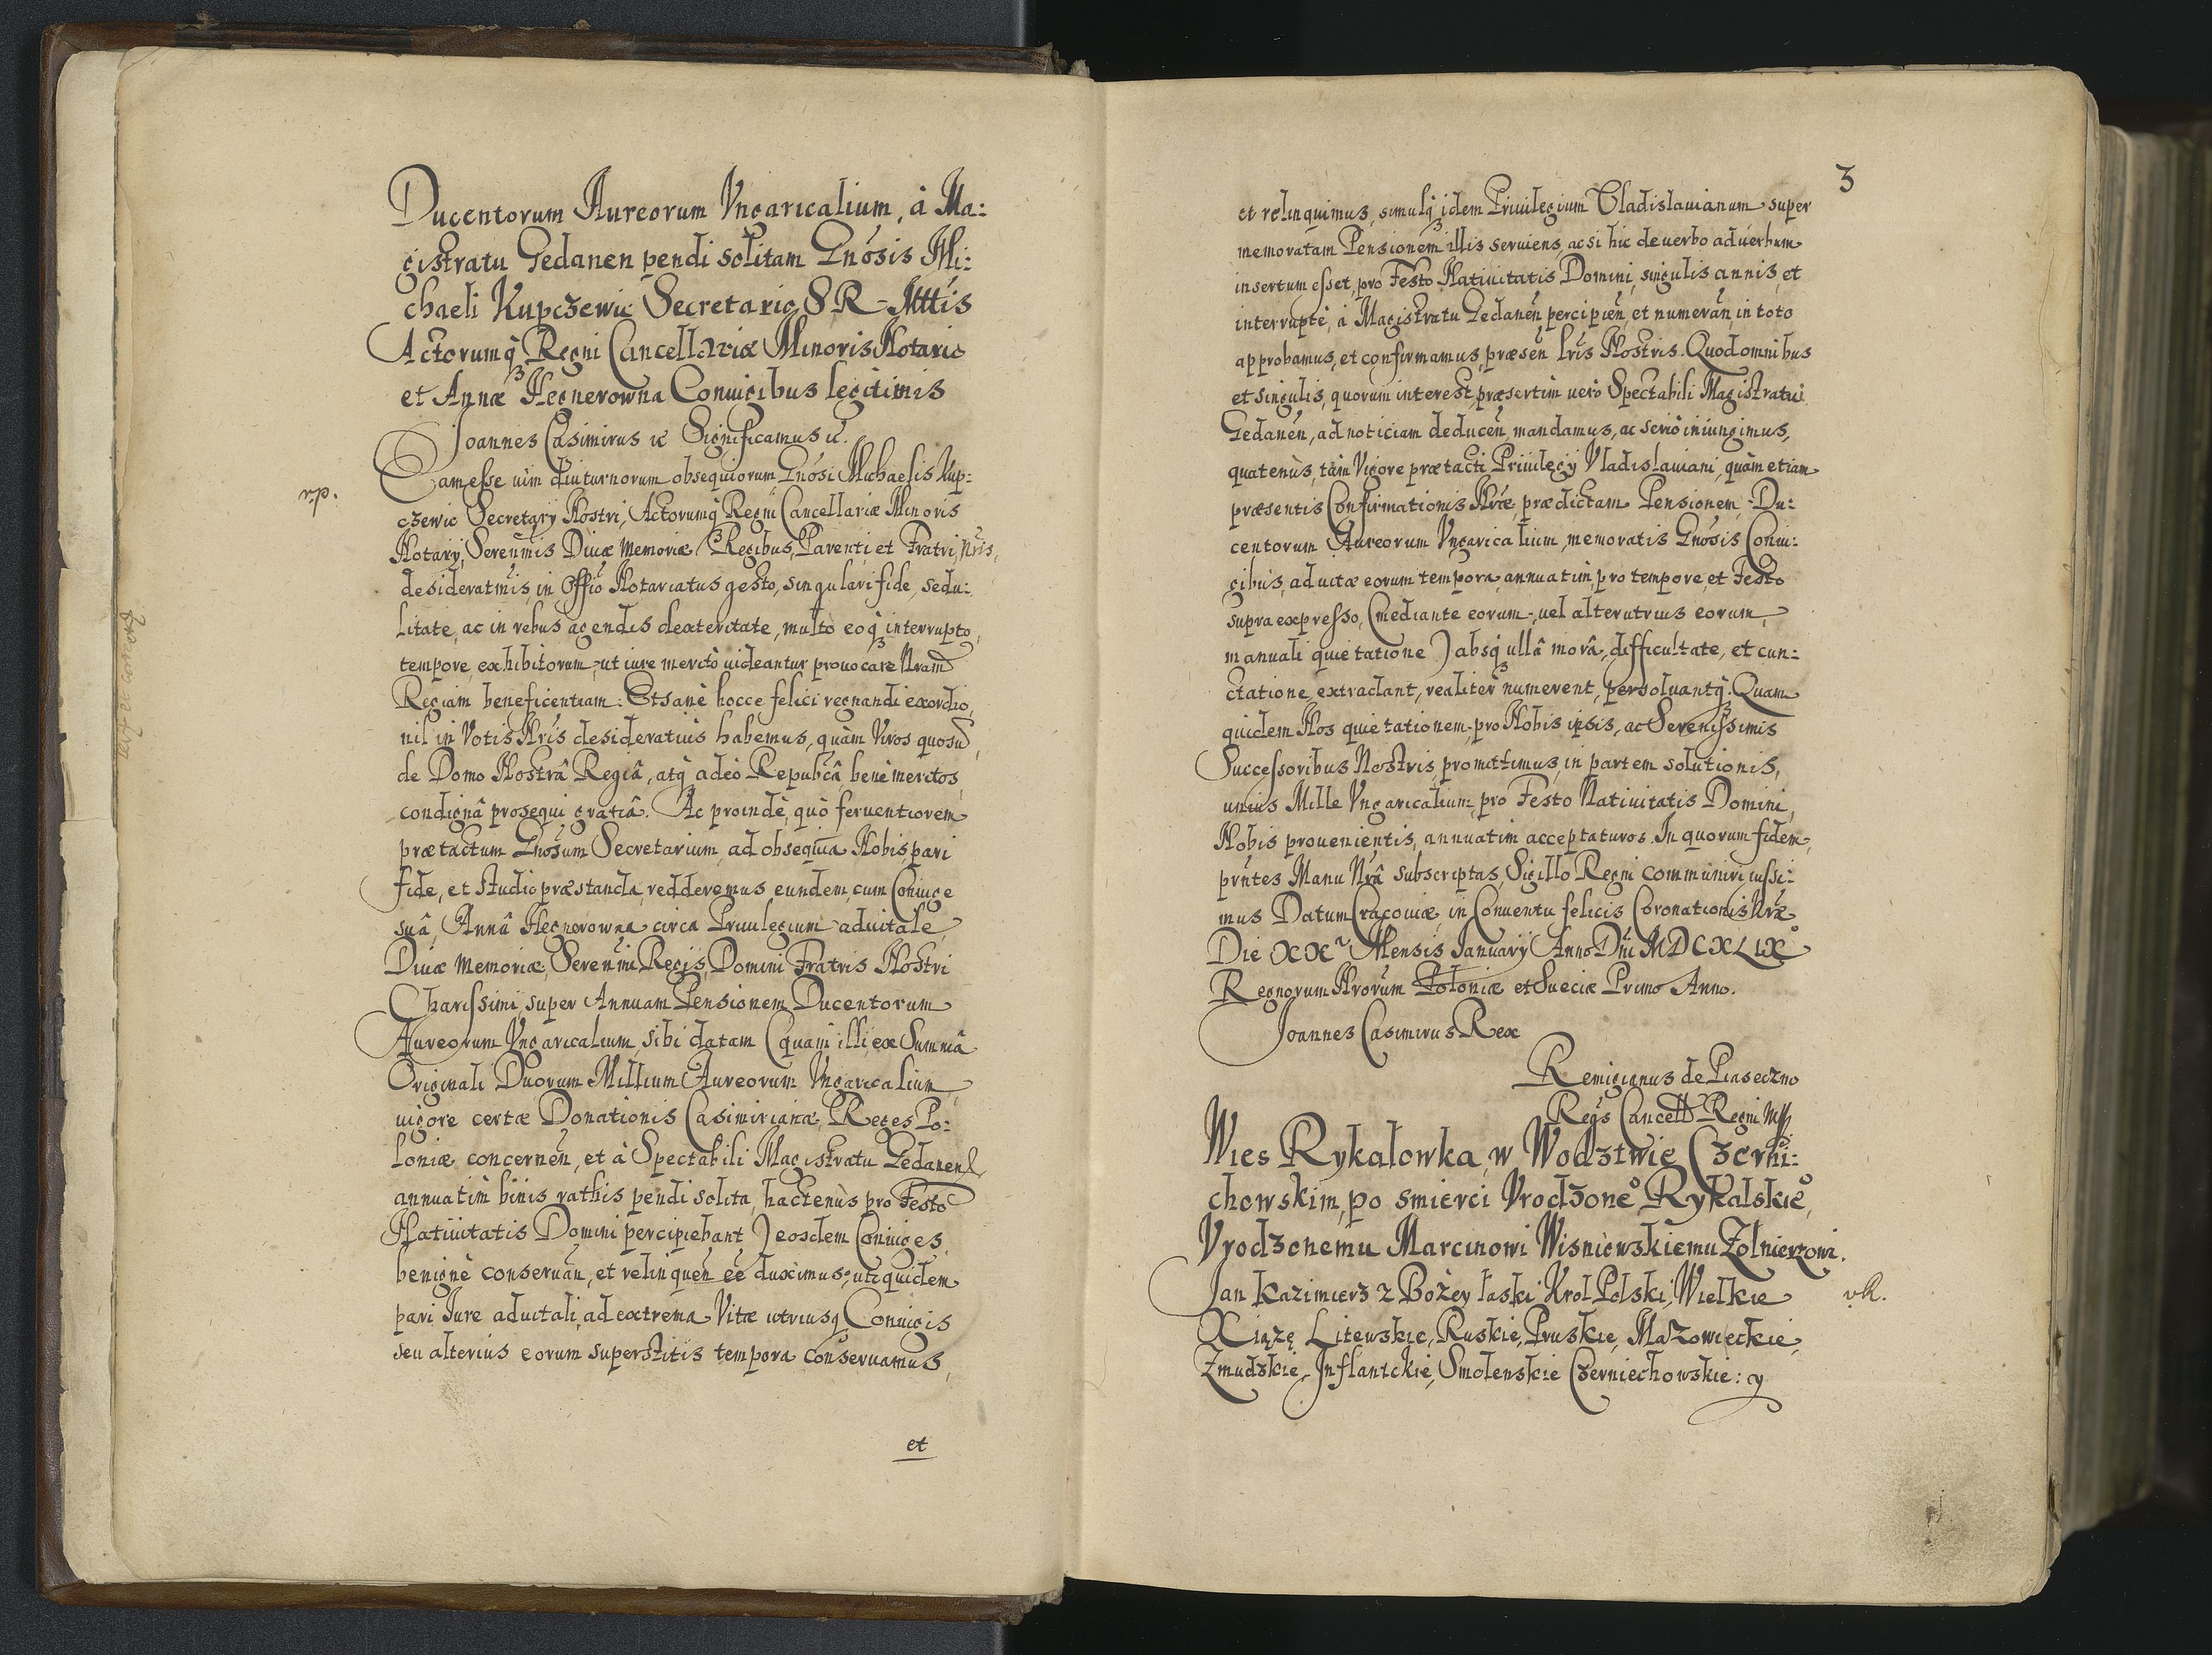 Ducentorum Aureorum Vngaricalium, à Ma:
gistratu Gedanen pendi solitam Gnosis Mi:
chaeli Kupczewic Secretario S R Mttis
Actorumq3 Regni Cancellariæ Minoris Notario
et Annæ Hegnerowna Coniugibus legitimis
Joannes Casimirus ic Significamus ic.
Eam esse uim diuturnorum obsequiorum Gnosi Michaelis Kup:
czewic Secretarÿ Nostri, Actorumq3 Regni Cancellariæ Minoris
Notarÿ, Serenmis Diuæ Memoriæ Regibus, Parenti, et Fratri, Nris,
desideratmis, in Offio Notariatus gesto, singulari fide, sedu:
litate, ac in rebus agendis dexteritate, multo eoq3 interrupto
tempore, exhibitorum, ut iure meritò uideantur prouocare Nram
Regiam beneficentiam. Et sanè hocce felici regnandi exordio,
nil in Votis Nris desideratius habemus, quàm Viros quosu
de Domo Nostrâ Regiâ, atq adeò Republcâ, benè meritos,
condignâ prosequi gratiâ. Ac proindè, quò feruentiorem
prætactum Gnosum Secretarium, ad obsequia Nobis, pari
fide, et studio præstanda, redderemus eundem, cum Coniuge
suâ, Annâ Hegnerowna circa Priuilegium aduitale,
Diuæ Memoriæ, Serenmi Regis, Domini Fratris Nostri
Charissimi, super Annuam Pensionem Ducentorum
Aureorum Vngaricalium, sibi datam (quam illi, ex Summâ
Originali Duorum Millium Aureorum Vngaricalium,
uigore certæ Donationis Casimirianæ, Reges Po:
loniæ concernen, et à Spectabili Magistratu Gedanen
annuatim binis rathis pendi solita, hactenùs pro Festo
Natiuitatis Domini percipiebant) eosdem Coniuges,
benignè conseruan, et relinquen eê duximus, uti quidem
pari Iure aduitali, ad extrema Vitæ utriusq Coniugis
seu alterius eorum superstitis tempora conseruamus,
et
3
et relinquimus, simulq3 idem Priuilegium Vladislauianum super
memoratam Pensionem illis seruiens, ac si hic de uerbo ad uerbum
insertum esset, pro Festo Natiuitatis Domini, singulis annis, et
interruptè, à Magistratu Gedanen percipien, et numeran, in toto
approbamus, et confirmamus, præsen lris Nostris. Quod omnibus
et singulis, quorum interest, præsertim uerò Spectabili Magistratui
Gedanen, ad noticiam deducen, mandamus, ac seriò iniungimus,
quatenùs, tàm Vigore prætacti Priuilegÿ Vladislauiani, quàm etiam
præsentis Confirmationis Nræ, prædictam Pensionem Du:
centorum Aureorum Vngaricalium, memoratis Gnosis Coniu:
gibus, ad uitæ eorum tempora, annuatim, pro tempore, et Festo
supra expresso, (mediante eorum, uel alterutrius eorum,
manuali quietatione) absq3 ullâ morâ, difficultate, et cun:
ctatione, extradant, realiter numerent, persoluantq3. Quam
quidem Nos quietationem pro Nobis ipsis, ac Serenissimis
Successoribus Nostris, promittimus, in partem solutionis,
unius Mille Vngaricalium, pro Festo Natiuitatis Domini,
Nobis prouenientis, annuatim acceptaturos. In quorum fidem,
prntes Manu Nrâ subscriptas, Sigillo Regni communiri iussi:
mus. Datum Cracouiæ, in Conuentu felicis Coronationis Nræ
Die XX Mensis Januarÿ Anno Dni MDCXLIX°
Regnorum Nrorum Poloniæ et Sueciæ Primo Anno.
Joannes Casimirus Rex
Remigianus de Piaseczno
Regs Cancell Regni
Wies Rykalowka, w Wodztwie Czerni:
chowskim, po smierci Vrodzone° Rykalskie°,
Vrodzonemu Marcinowi Wisniowskiemu Zolnierzowi.
Jan Kazimierz z Bożey łaski Krol Polski, Wielkie
Xiążę Litewskie, Ruskie, Pruskie, Mazowieckie,
Zmudzkie, Inflantckie, Smolenskie Czerniechowskie: y